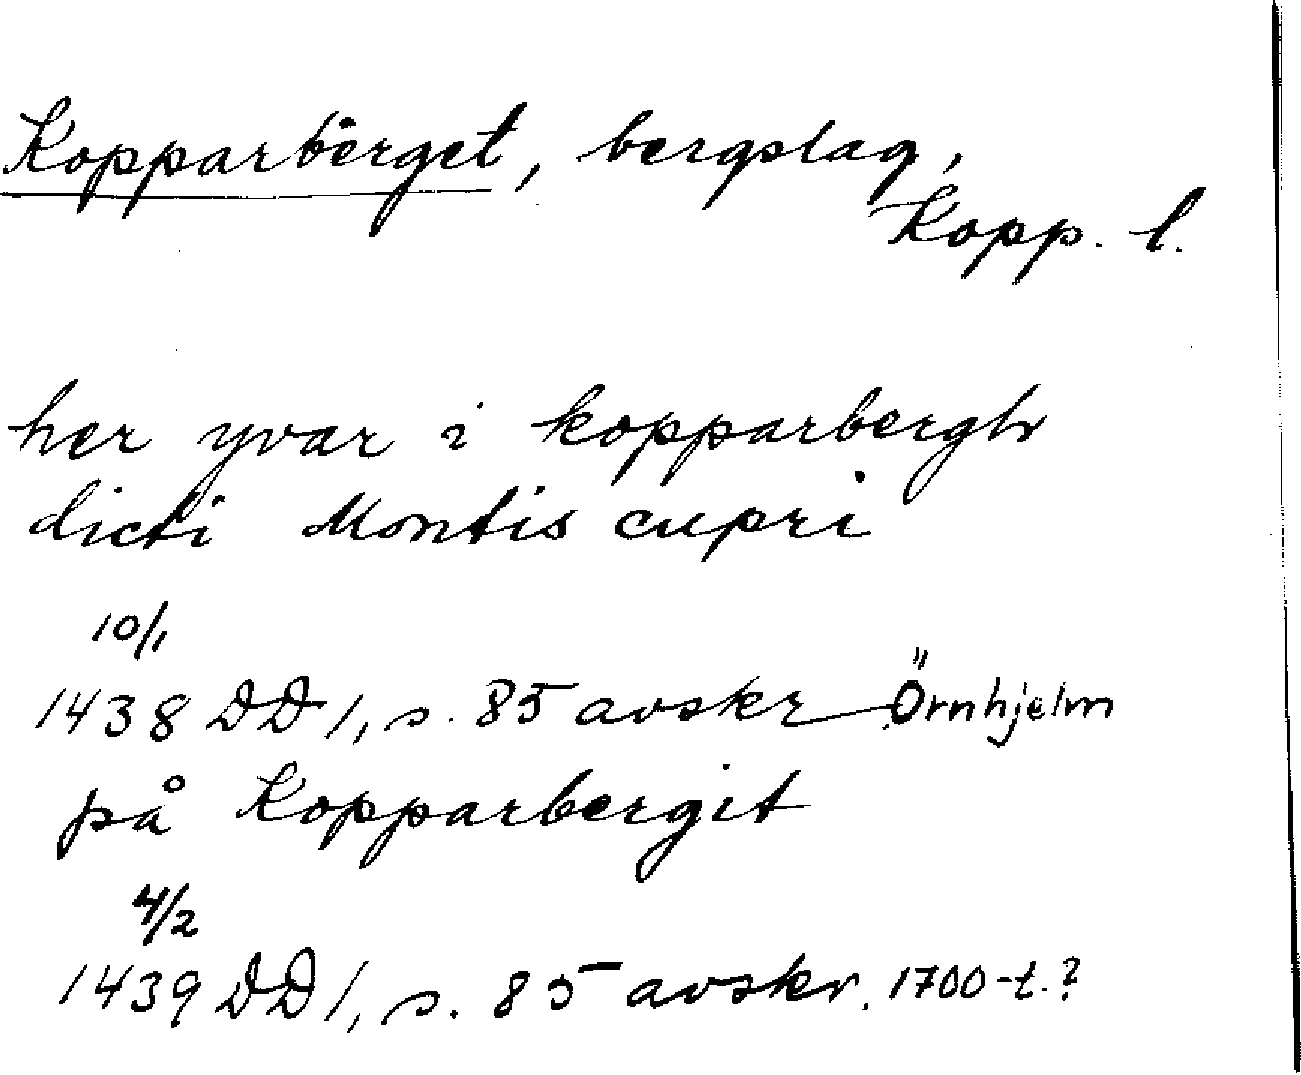 Kopparberget, bergslag,
Kopp. l.
her yvar i kopparbergh
dicti Montis cupri
10/1
1438 DD 1, s. 85 avskr Örnhjelm
på Kopparbergit
4/2
1439 DD 1, s. 85 avskr. 1700-t.?